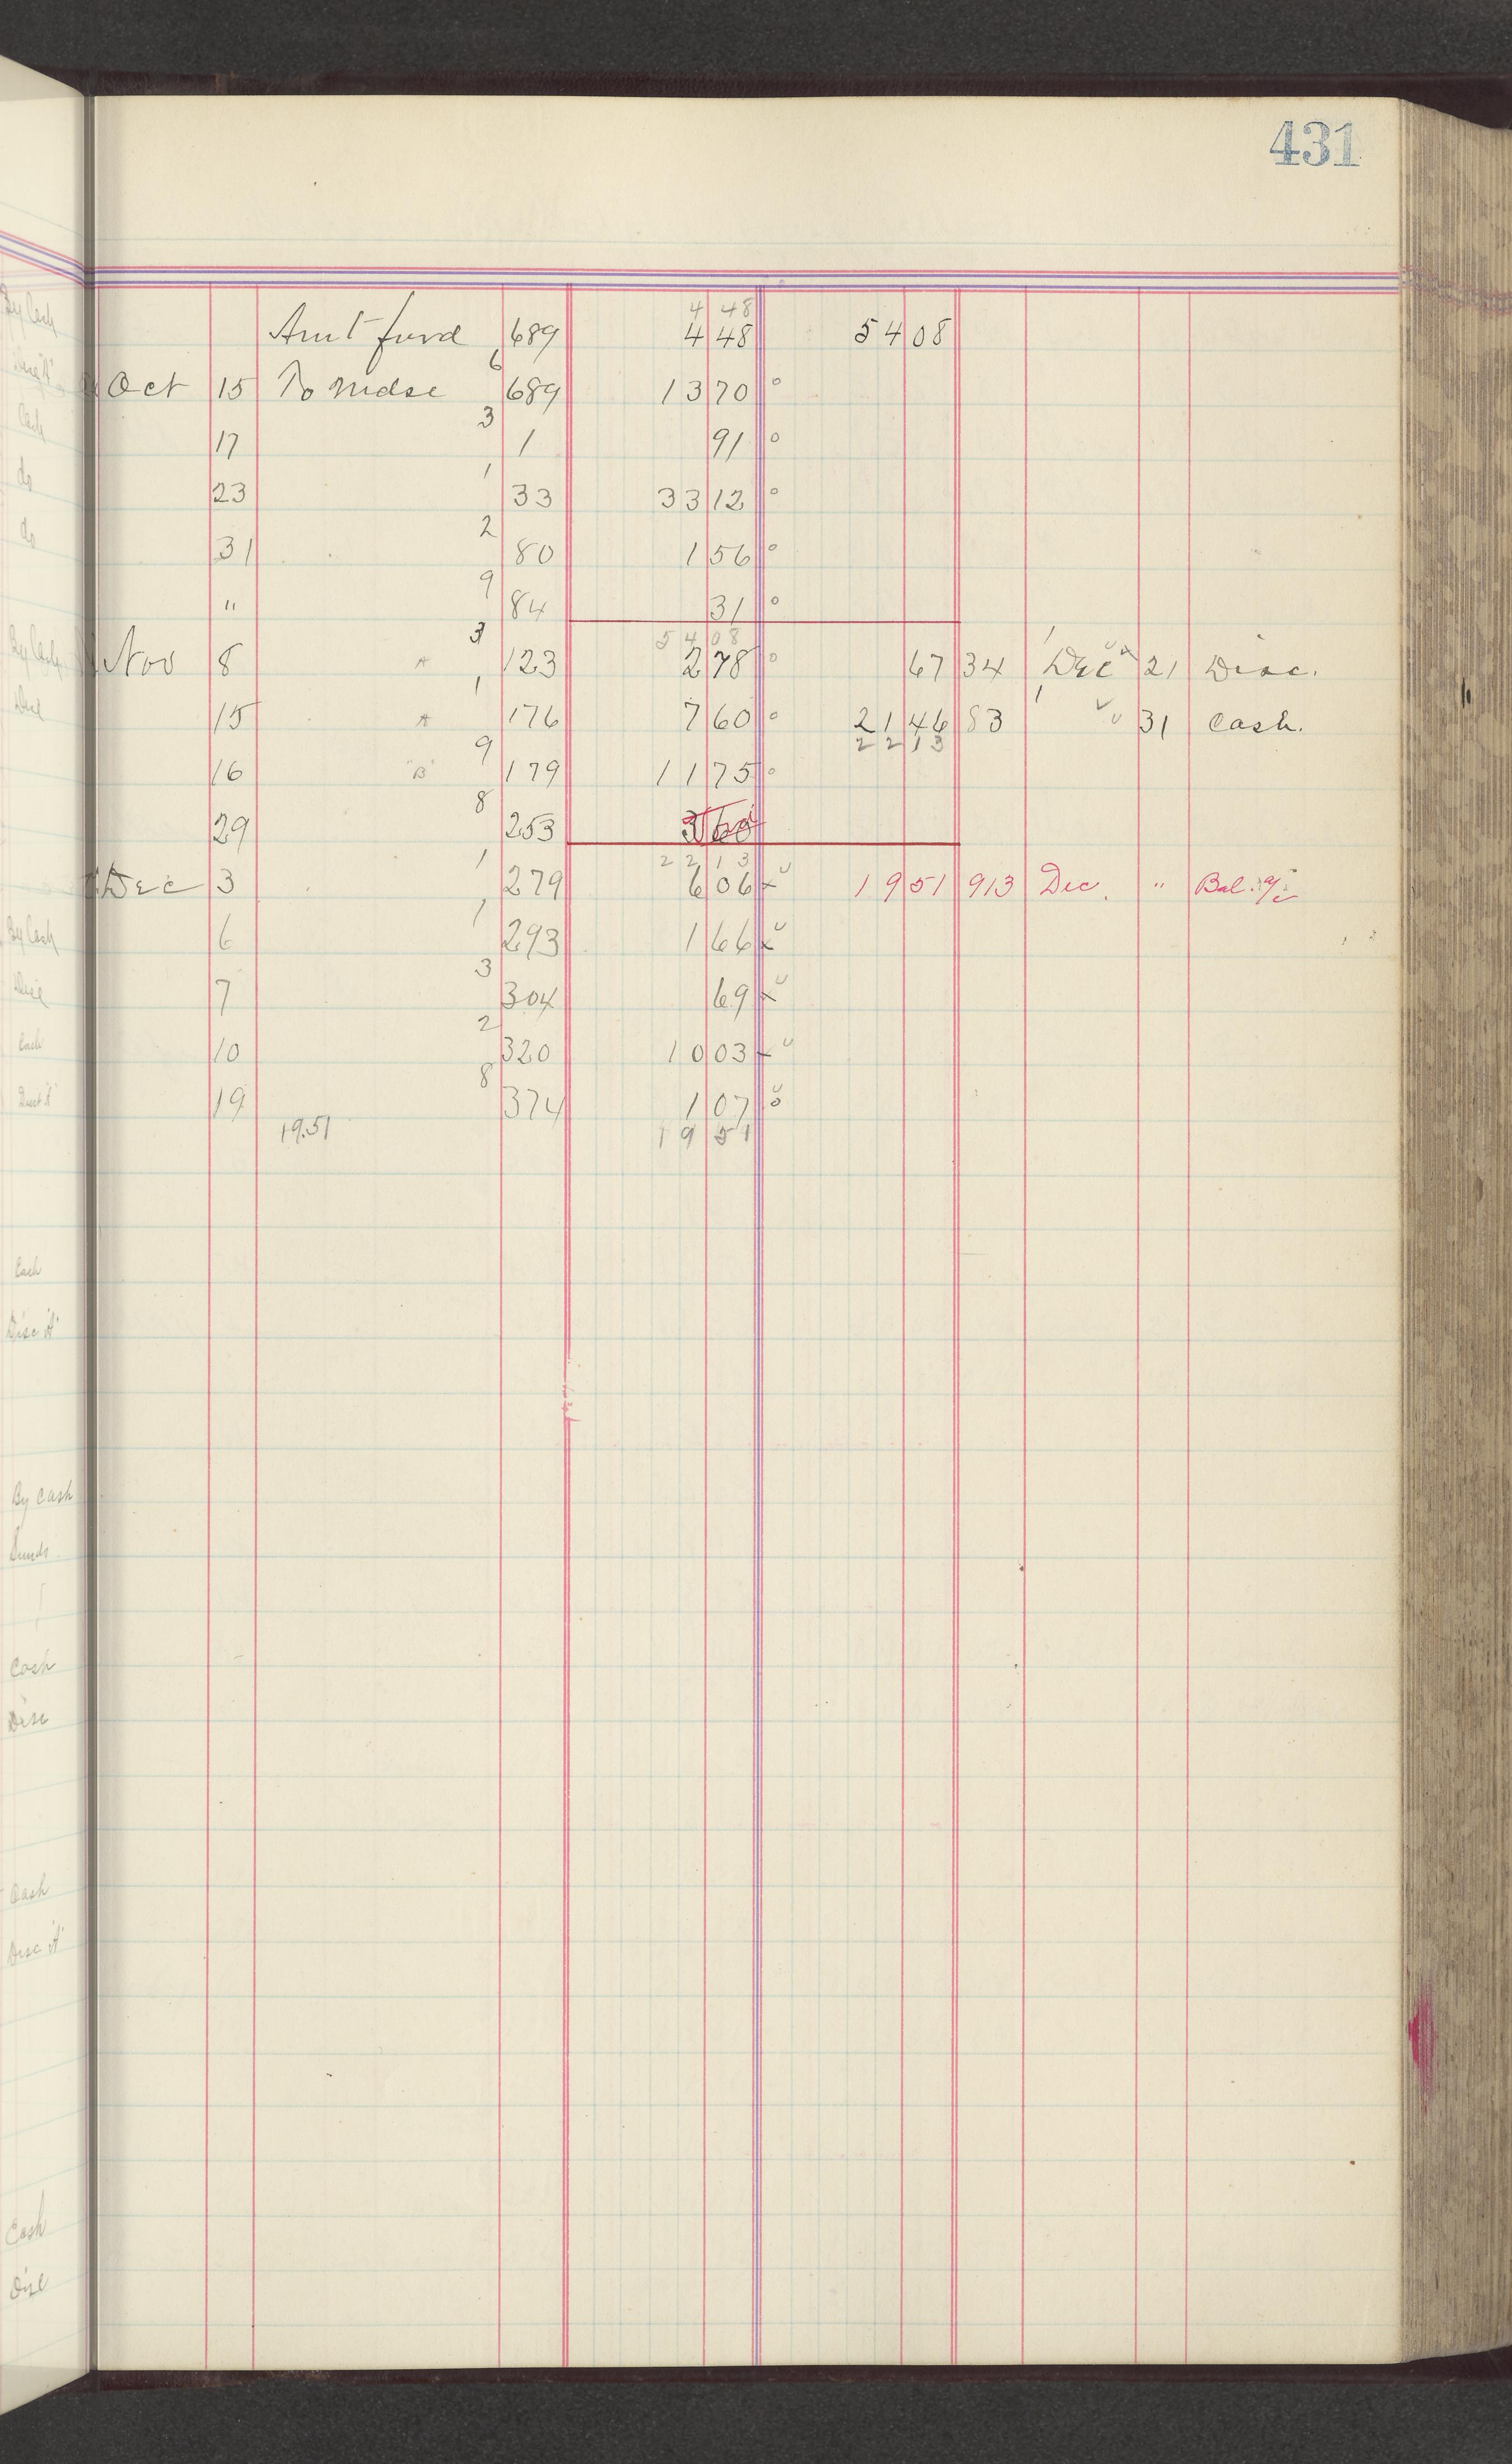 431
4 48
Amt forwd 689 4 48 54 08
Oct 15 To Mdse 6 689 13 70 o
17 3 1 91 o
23 1 33 33 12 o
31 2 80 1 56 o
" 9 84 31 o
54 08
Nov 8 A 3 123 2 78 o 67 34 Dec 21 Disc.
15 A 1 176 7 60 o 21 46 83 " 31 Cash.
22 13
16 "B" 9 179 11 75 o
29 8 253 3 60
22 13
Dec 3 1 279 6 06 x 19 51 913 Dec. " Bal. a/c
6 1 293 1 66 x
7 3 304 69 x
10 2 320 10 03 x
19 8 374 1 07 o
19.51 19 51
By Cash
Cash
do
do
By Cash
Disc
By Cash
Disc
Cash
Cash
Disc "A"
By Cash
Cash
Disc
Cash
Disc "A"
Cash
Disc